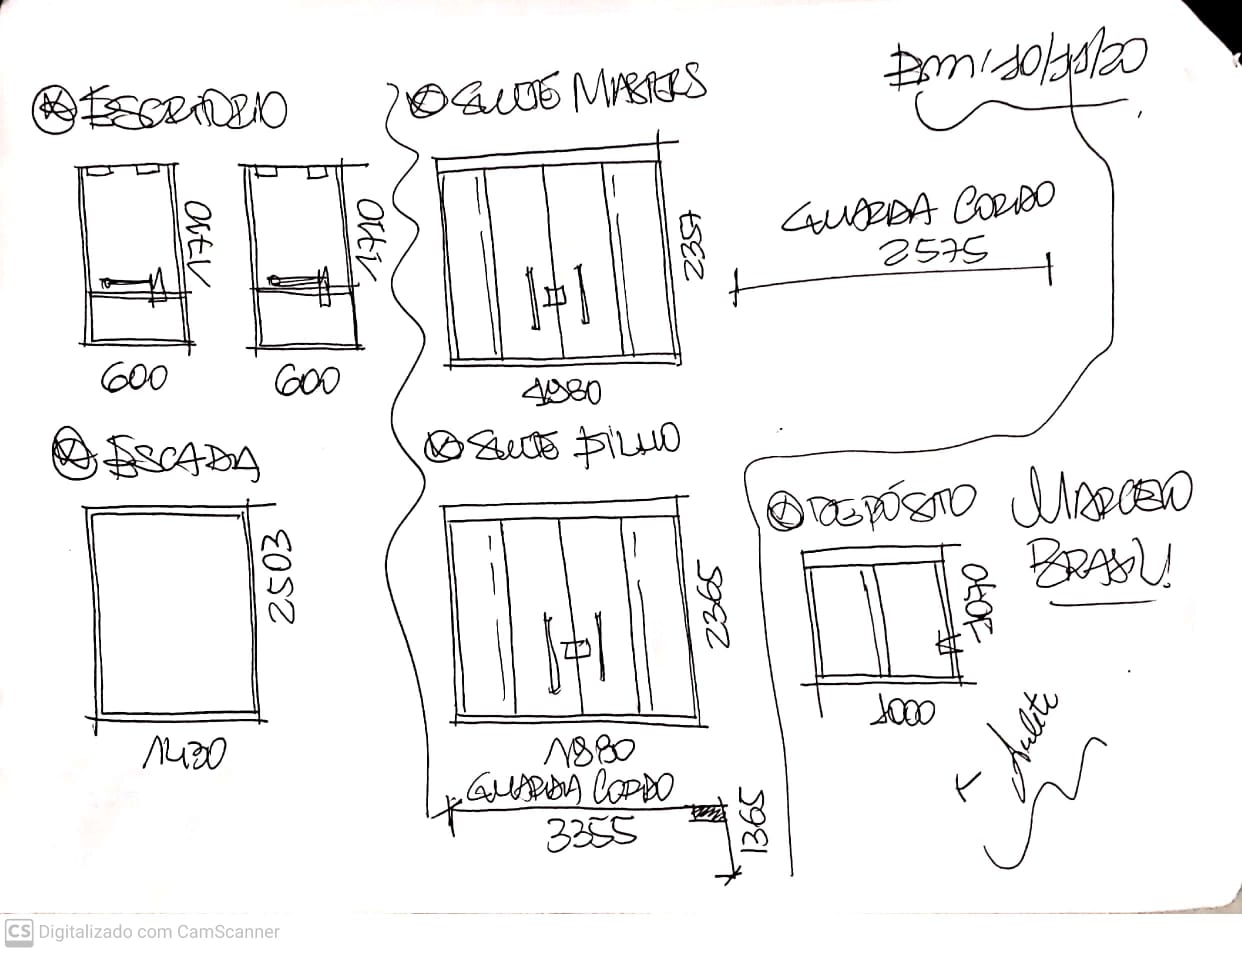 Em: 10/11/20
ESCRITÓRIO
1710
1710
600
600
ESCADA
2503
1430
SUITE MASTERS
2357
1980
GUARDA CORPO
2575
SUITE FILHO
2365
1880
GUARDA CORPO
3355
1365
DEPÓSITO
1070
1000
MARCELO
BRASIL!
CS Digitalizado com CamScanner